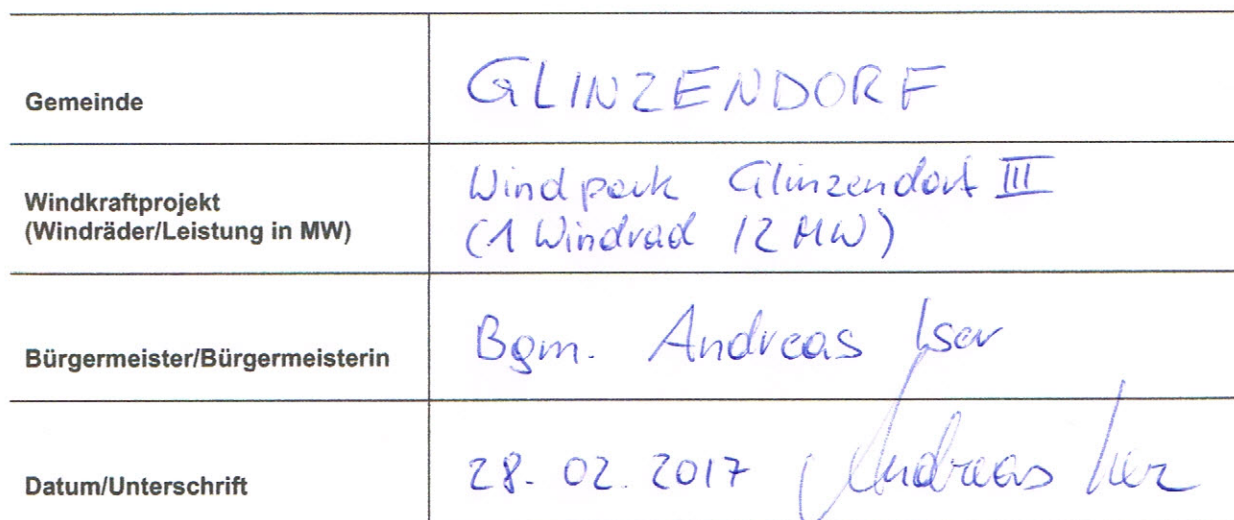 Gemeinde
GLINZENDORF
Windkraftprojekt
(Windräder/Leistung in MW)
Windpark Glinzendorf III
(1 Windrad /2 MW)
Bürgermeister/Bürgermeisterin
Bgm. Andreas Iser
Datum/Unterschrift
28.02.2017 Andreas Iser